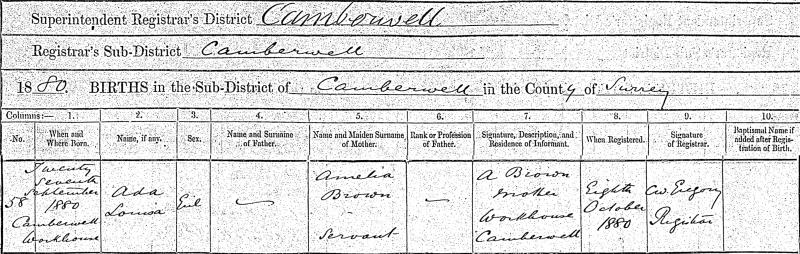 Superintendent Registrar's District Camberwell
Registrar's Sub-District Camberwell
1880. BIRTHS in the Sub-District of Camberwell in the County of Surrey
Columns:— 1. 2. 3. 4. 5. 6. 7. 8. 9. 10.
No. When and Where Born. Name, if any. Sex. Name and Surname of Father. Name and Maiden Surname of Mother. Rank or Profession of Father. Signature, Description, and Residence of Informant. When Registered. Signature of Registrar. Baptismal Name if added after Registration of Birth.
58 Twenty Seventh September 1880 Camberwell Workhouse
Ada Louisa
Girl
—
Amelia Brown Servant
—
A Brown Mother Workhouse Camberwell
Eighth October 1880
CW Gregory Registrar